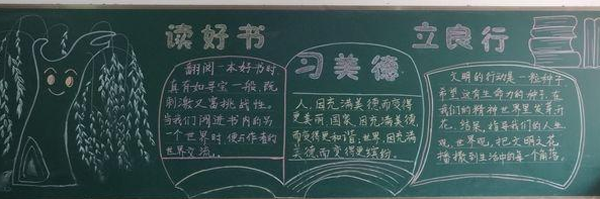 读好书
翻阅一本好书时
真有如寻宝一般，既
刺激又富挑战性。
当我们阅进书内的另
一个世界时，便与作者的
世界交流。
习美德
人，因充满美德而变得
更美丽，国家，因充满美德
而变得更和谐，世界，因充满
美德，而变得更缤纷。
立良行
文明的行动是一粒种子
希望这有生命力的种子，在
我们的精神世界里发芽开
花、结果，指导我们的人生
观，世界观，把文明之花
播撒到生活中的每一个角落。